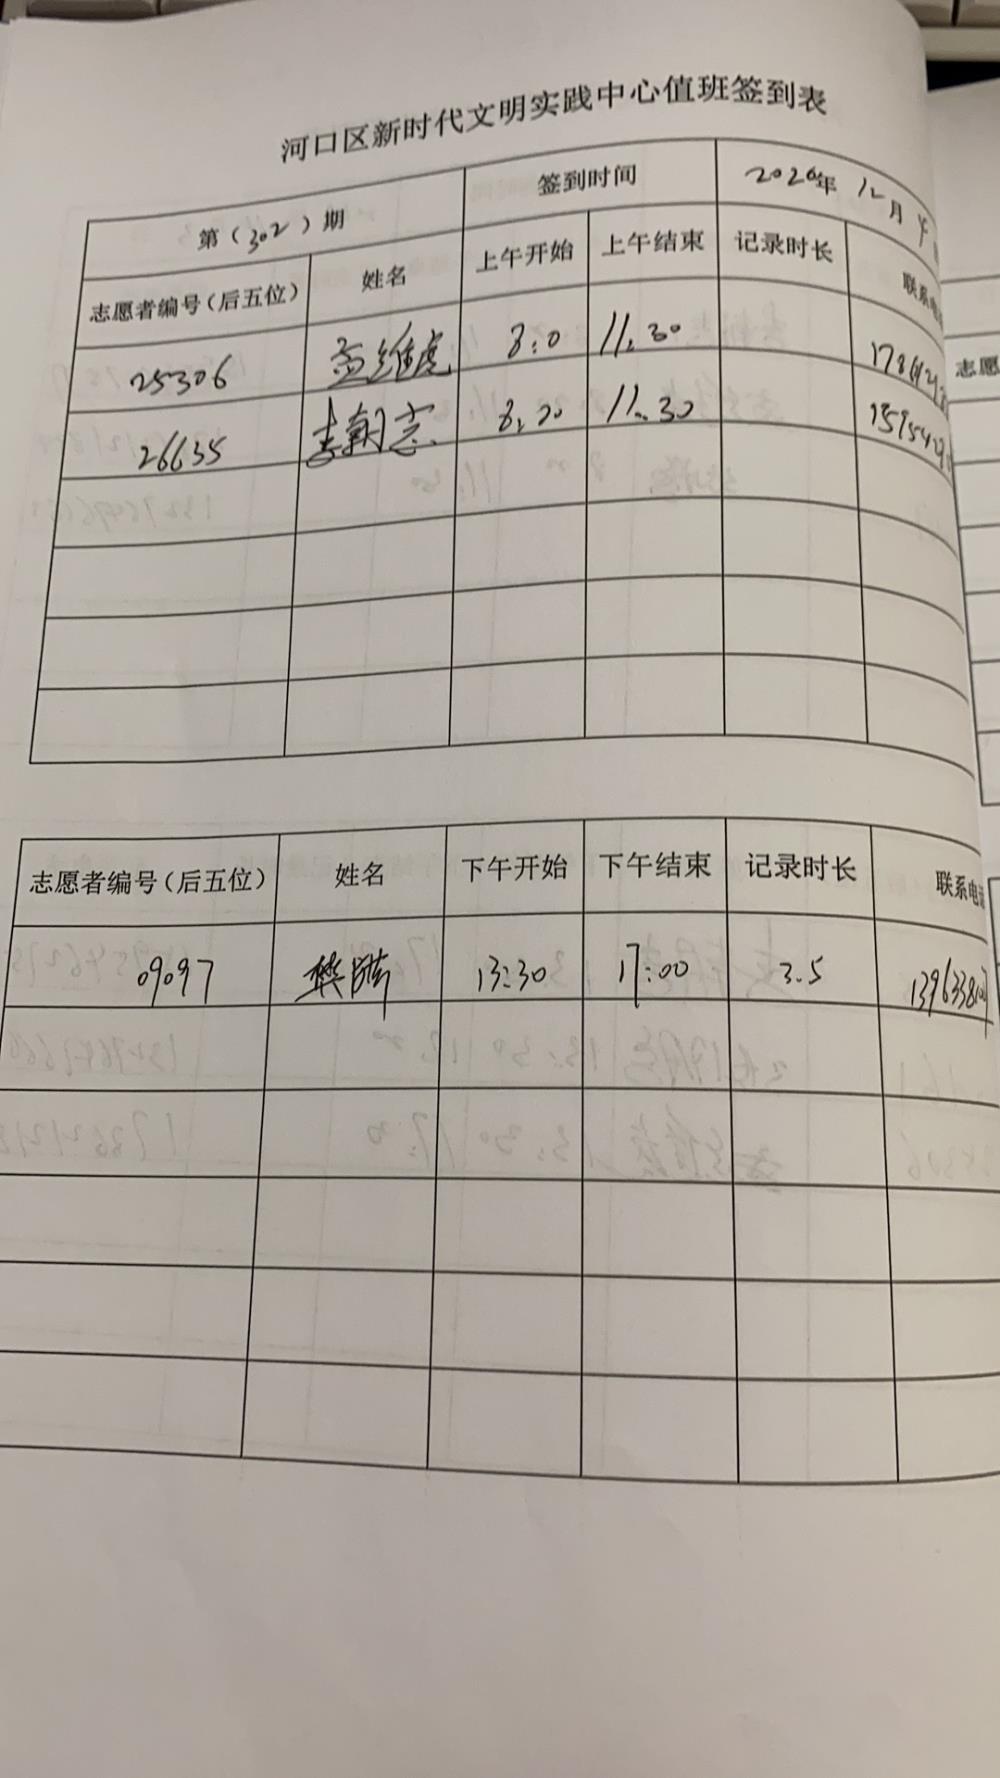 河口区新时代文明实践中心值班签到表
第（302）期 签到时间 2020年 12月
志愿者编号（后五位） 姓名 上午开始 上午结束 记录时长 联系电
25306 孟维虎 8:0 11:30
26635 李朝志 8:20 11:30
志愿
志愿者编号（后五位） 姓名 下午开始 下午结束 记录时长 联系电话
09097 樊 13:30 17:00 3.5